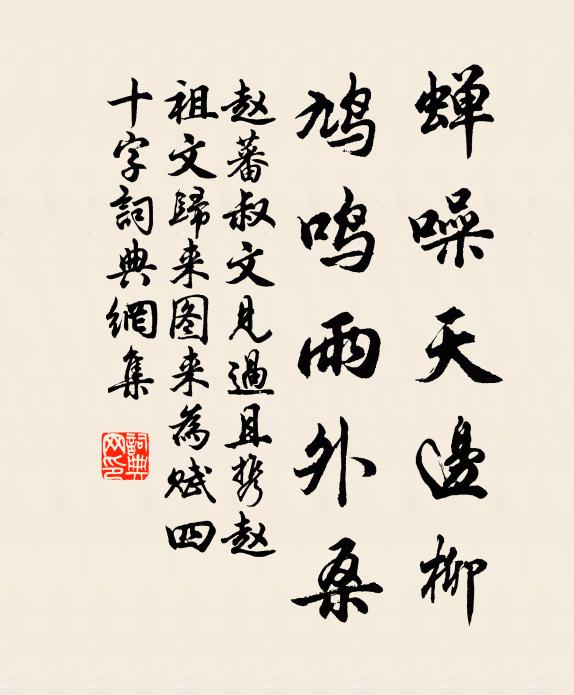 蝉噪天邊柳
鸠鸣雨外桑
赵蕃叔文見過且携赵
祖文歸来图来為赋四
十字詞典網集
詞典
网印